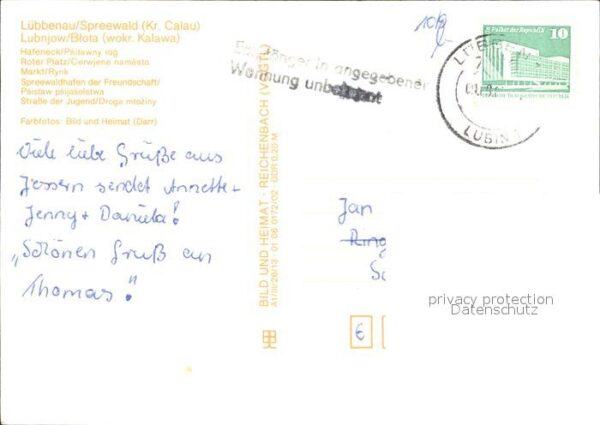 Lübbenau/Spreewald (Kr. Calau)
Lubnjow/Błota (wokr. Kalawa)
Hafeneck/Pśitawny rog
Roter Platz/Cerwjene naměsto
Markt/Rynk
Spreewaldhafen der Freundschaft/
Pśistaw pśijaśelstwa
Straße der Jugend/Droga młoźiny
Farbfotos: Bild und Heimat (Darr)
Viele liebe Grüße aus
Jessern sendet Annette +
Jenny + Daniela!
„Schönen Gruß an
Thomas!"
BILD UND HEIMAT · REICHENBACH (VOGTL)
A1/III/26/13 · 01 06 0172/02 · DDR 0,20 M
Empfänger in angegebener
Wohnung unbekannt
10
Palast der Republik
LUBIN
Jan
Ring
privacy protection
Datenschutz
€